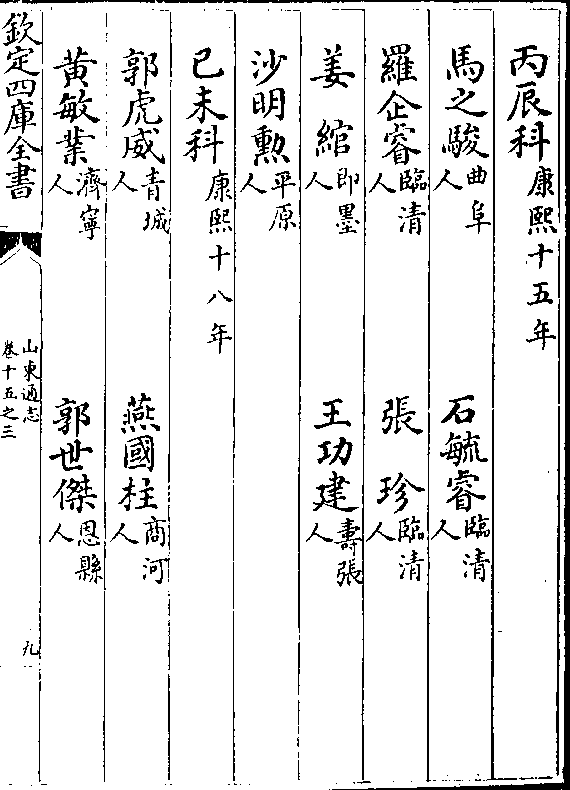 丙辰科康熙十五年
馬之駿曲阜人 石毓睿臨清人
羅企睿臨清人 張珍臨清人
姜綰即墨人 王功建壽張人
沙明勲平原人
已未科康熙十八年
郭虎威青城人 燕國柱商河人
黃敏業濟寧人 郭世傑恩縣人
欽定四庫全書
山東通志
卷十五之三
九